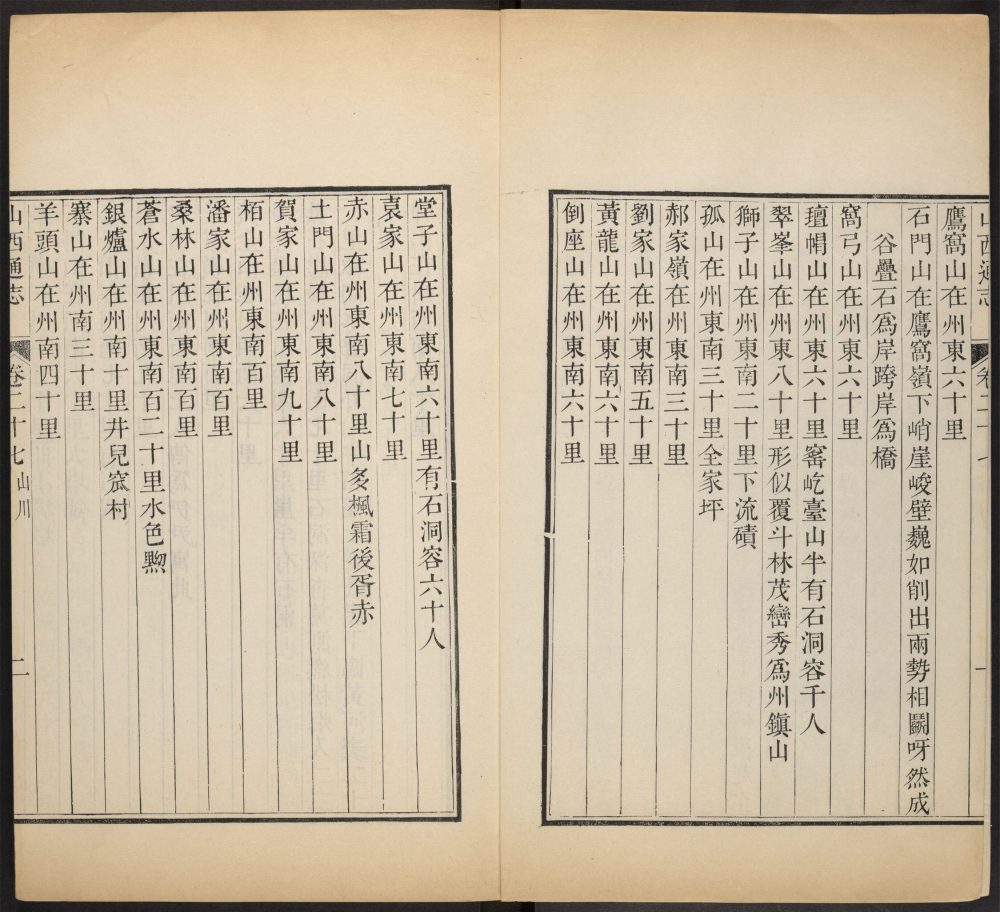 山西通志 卷二十七
鷹窩山在州東六十里
石門山在鷹窩嶺下峭崖峻壁巍如削出兩勢相鬭呀然成
谷疊石爲岸跨岸爲橋
窩弓山在州東六十里
璮帽山在州東六十里窰屹臺山半有石洞容千人
翠峯山在州東八十里形似覆斗林茂巒秀爲州鎭山
獅子山在州東南二十里下流磧
孤山在州東南三十里全家坪
郝家嶺在州東南三十里
劉家山在州東南五十里
黃龍山在州東南六十里
倒座山在州東南六十里
堂子山在州東南六十里有石洞容六十人
袁家山在州東南七十里
赤山在州東南八十里山多楓霜後胥赤
土門山在州東南八十里
賀家山在州東南九十里
栢山在州東南百里
潘家山在州東南百里
桑林山在州東南百里
蒼水山在州東南百二十里水色黦
銀爐山在州南十里井兒窊村
寨山在州南三十里
羊頭山在州南四十里
山西通志 卷二十七 山川 二